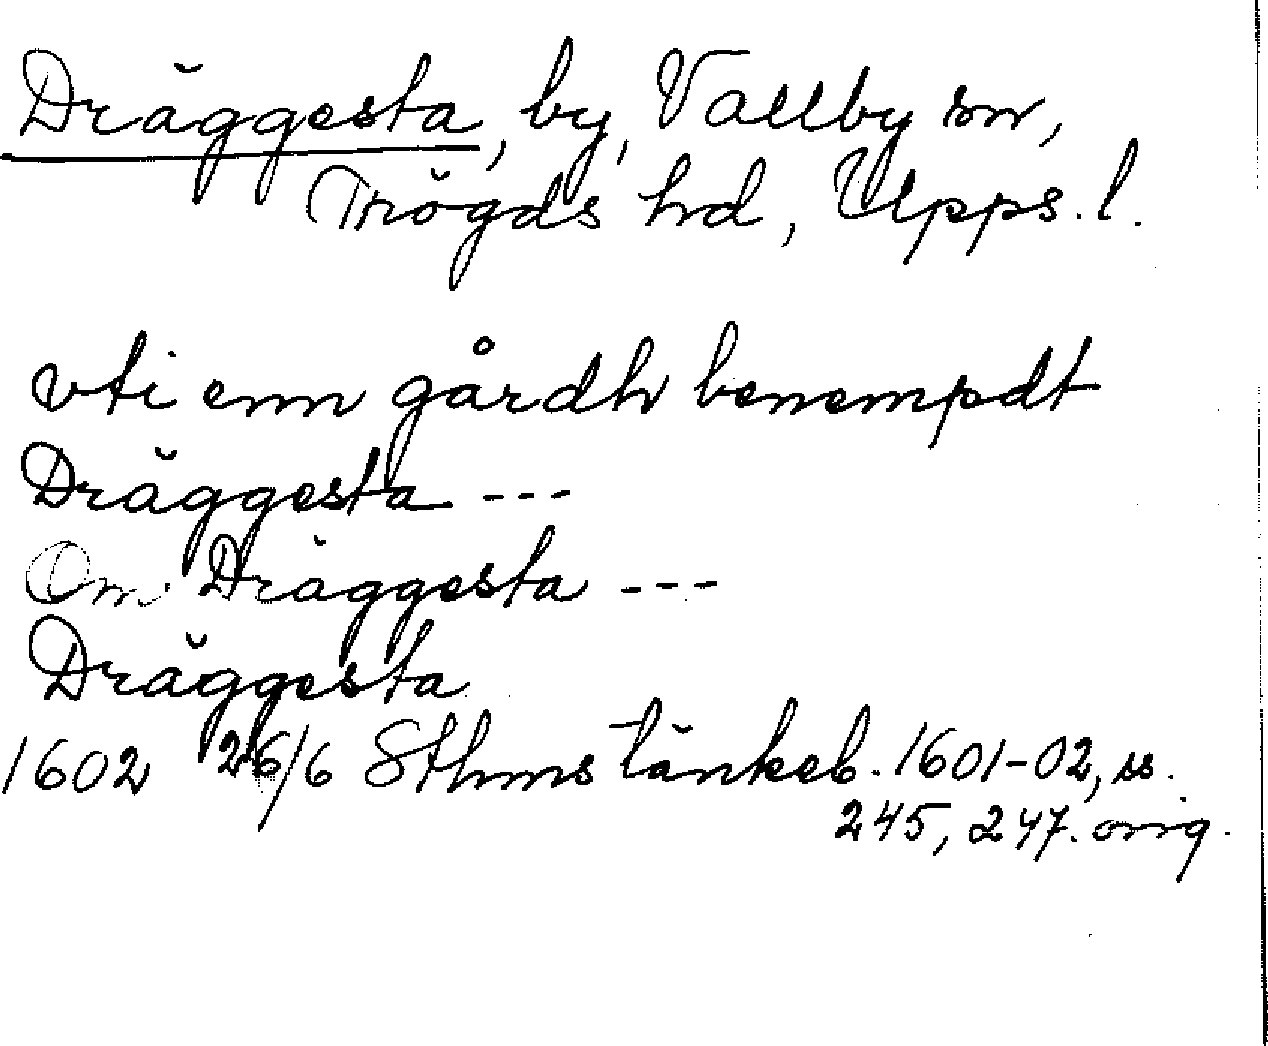 Dräggesta, by, Vallby sn,
Trögds hd, Upps. l.
vti enn gårdh benempdt
Dräggesta ---
Om Dräggesta ---
Dräggesta
1602 26/6 Sthms tänkeb. 1601-02, ss.
245, 247. orig.